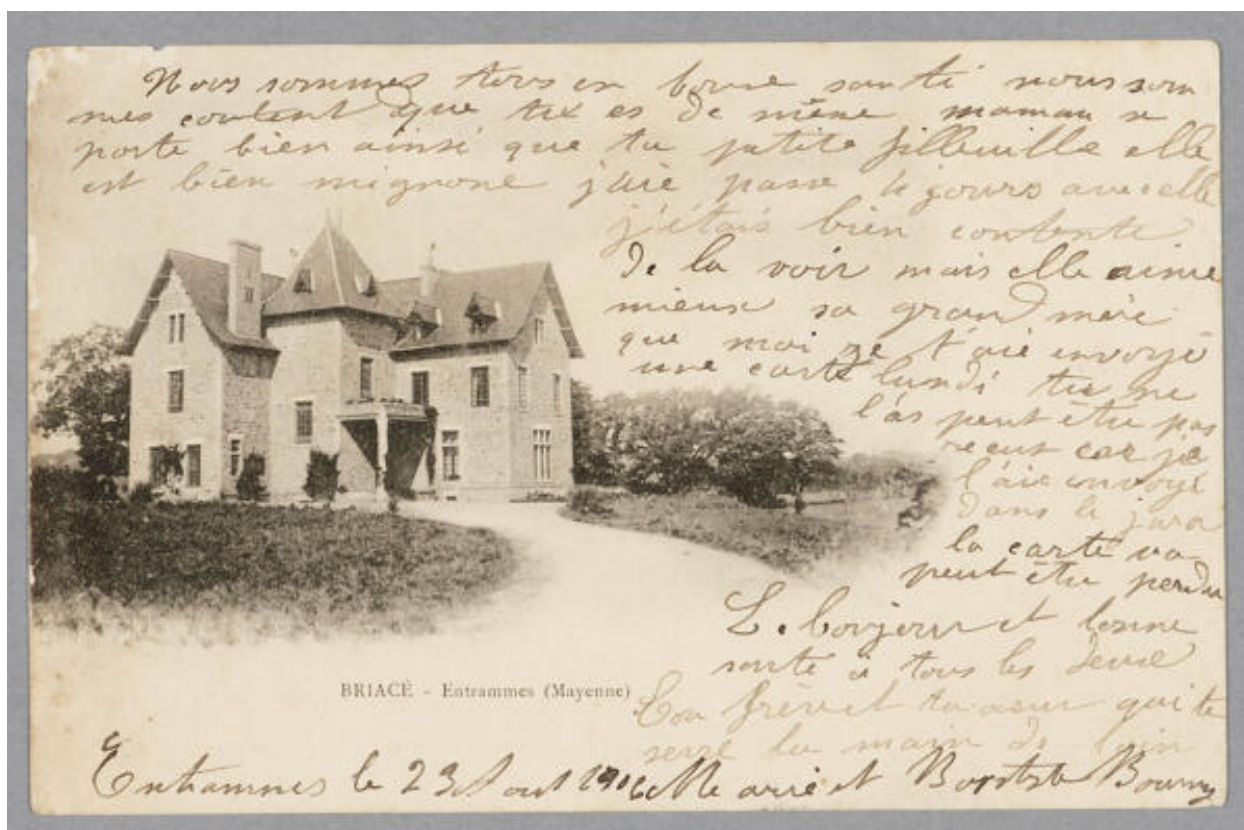 Nous sommes tous en bonne santé nous som
mes content que tu es de même maman se
porte bien ainsi que ta petite filleuille elle
est bien mignone j'aie passe 4 jours avec elle
j'étais bien contente
de la voir mais elle aime
mieux sa grand mère
que moi je t'aie envoyé
une carte lundi tu ne
l'as peut être pas
recut car je
l'aie envoyé
dans le jura
la carte va
peut être perdu
Le bonjour et bonne
santé à tous les deux
Ton frère et ta sœur qui te
serre la main de loin
BRIACÉ - Entrammes (Mayenne)
Entrammes le 23 Aout 1906 Marie et Baptiste